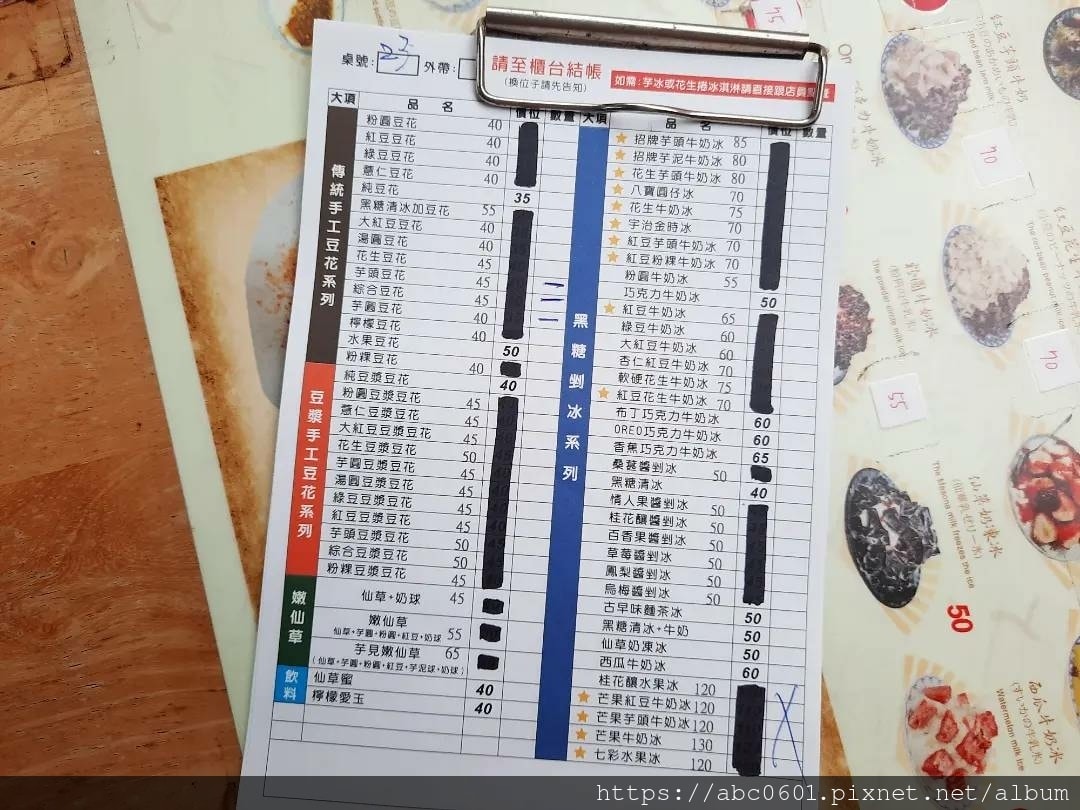 桌號: 外帶:
請至櫃台結帳
(換位子請先告知)
如需:芋冰或花生捲冰淇淋請直接跟店員
大項 品 名 價位 數量
傳統手工豆花系列
粉圓豆花 40
紅豆豆花 40
綠豆豆花 40
薏仁豆花 40
純豆花 35
黑糖清冰加豆花 55
大紅豆豆花 40
湯圓豆花 40
花生豆花 45
芋頭豆花 45
綜合豆花 45
芋圓豆花 40
檸檬豆花 40
水果豆花 50
粉粿豆花 40
豆漿手工豆花系列
純豆漿豆花 40
粉圓豆漿豆花 45
薏仁豆漿豆花 45
大紅豆豆漿豆花 45
花生豆漿豆花 50
芋圓豆漿豆花 45
湯圓豆漿豆花 45
綠豆豆漿豆花 45
紅豆豆漿豆花 45
芋頭豆漿豆花 50
綜合豆漿豆花 50
粉粿豆漿豆花 45
嫩仙草
仙草+奶球 45
嫩仙草
仙草+芋圓+粉圓+紅豆+奶球 55
芋見嫩仙草 65
(仙草+芋圓+粉圓+紅豆+芋泥球+奶球)
飲料
仙草蜜 40
檸檬愛玉 40
大項 品 名 價位 數量
黑糖剉冰系列
招牌芋頭牛奶冰 85
招牌芋泥牛奶冰 80
花生芋頭牛奶冰 80
八寶圓仔冰 70
花生牛奶冰 75
宇治金時冰 70
紅豆芋頭牛奶冰 70
紅豆粉粿牛奶冰 70
粉圓牛奶冰 55
巧克力牛奶冰 50
紅豆牛奶冰 65
綠豆牛奶冰 60
大紅豆牛奶冰 60
杏仁紅豆牛奶冰 70
軟硬花生牛奶冰 75
紅豆花生牛奶冰 70
布丁巧克力牛奶冰 60
OREO巧克力牛奶冰 60
香蕉巧克力牛奶冰 65
桑葚醬剉冰 50
黑糖清冰 40
情人果醬剉冰 50
桂花釀醬剉冰 50
百香果醬剉冰 50
草莓醬剉冰 50
鳳梨醬剉冰 50
烏梅醬剉冰 50
古早味麵茶冰 50
黑糖清冰+牛奶 50
仙草奶凍冰 50
西瓜牛奶冰 60
桂花釀水果冰 120
芒果紅豆牛奶冰 120
芒果芋頭牛奶冰 120
芒果牛奶冰 130
七彩水果冰 120
75
70
55
70
仙草奶凍冰
The Mesona milk freezes the ice
50
西瓜牛奶冰
Watermelon milk ice
https://abc0601.pixnet.net/album